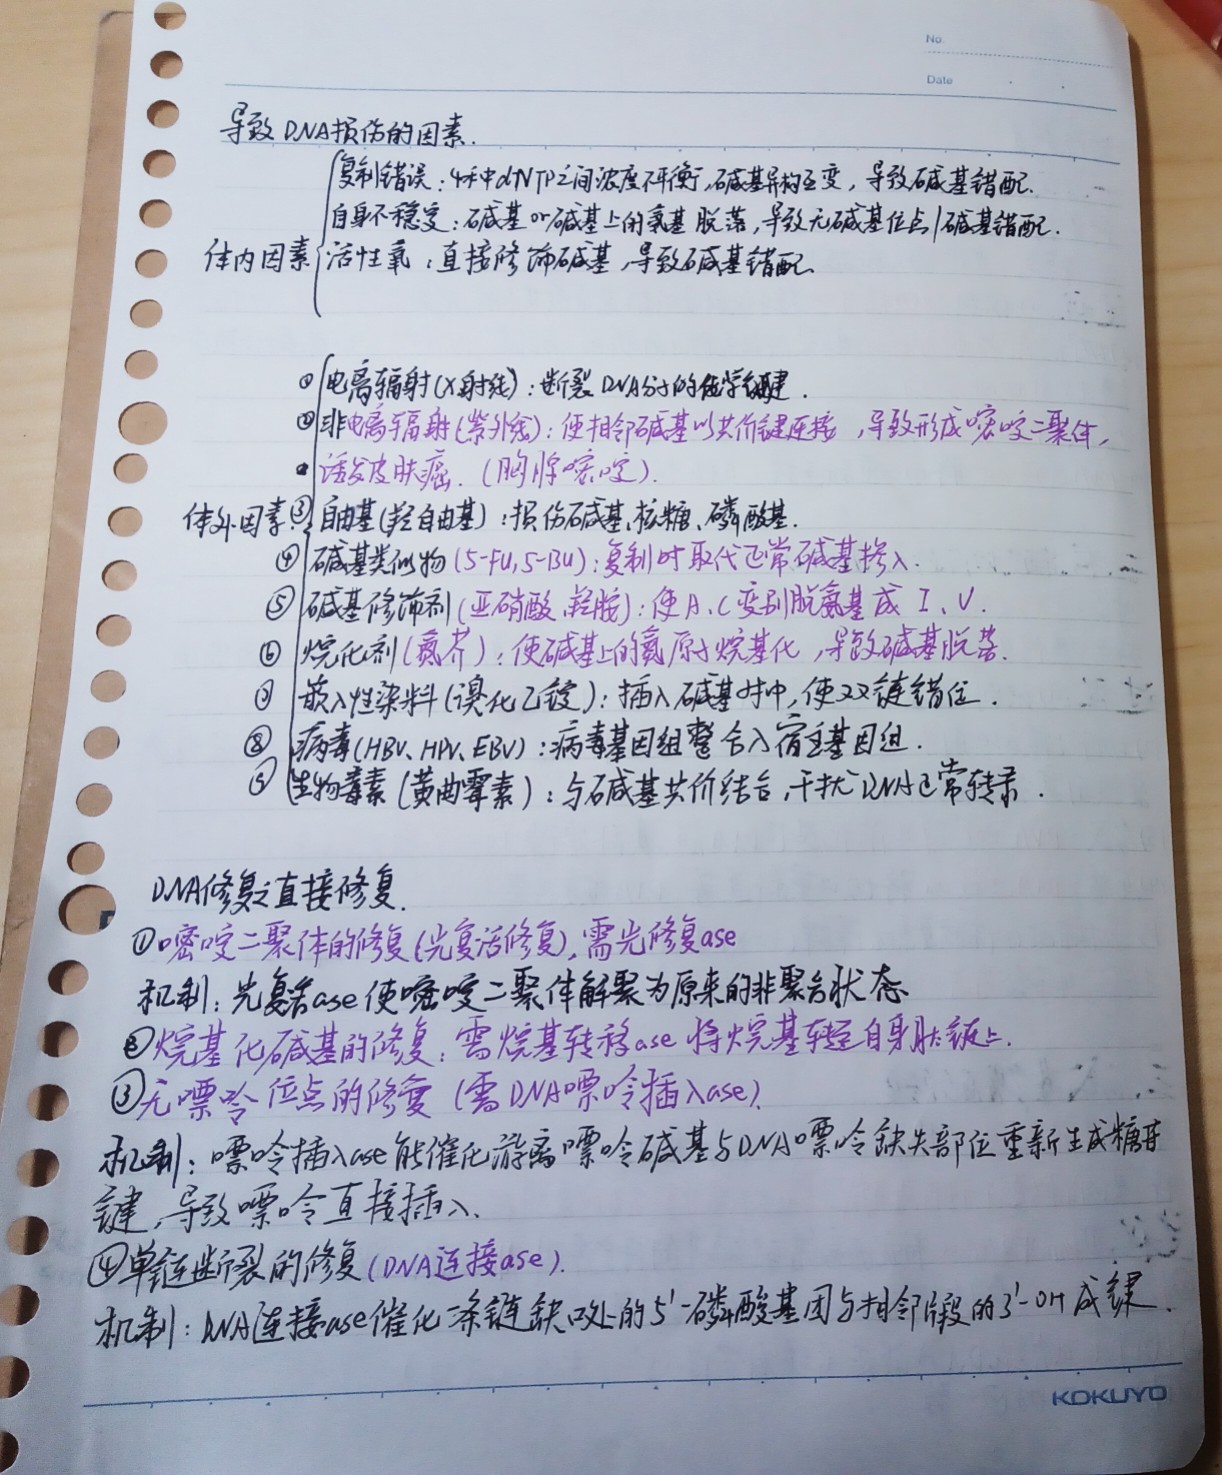 No.
Date
导致DNA损伤的因素.
复制错误：4种dNTP之间浓度不平衡，碱基异构互变，导致碱基错配.
自身不稳定：碱基or碱基上的氨基脱落，导致无碱基位点/碱基错配.
体内因素 活性氧：直接修饰碱基，导致碱基错配.
①电离辐射(X射线)：断裂DNA分子的化学键.
②非电离辐射(紫外线)：使相邻碱基以共价键连接，导致形成嘧啶二聚体，
诱发皮肤癌.(胸腺嘧啶).
体外因素 ③自由基(羟自由基)：损伤碱基、核糖、磷酸基.
④碱基类似物(5-FU,5-BU)：复制时取代正常碱基掺入.
⑤碱基修饰剂(亚硝酸、羟胺)：使A、C变别脱氨基成I、U.
⑥烷化剂(氮芥)：使碱基上的氮原子烷基化，导致碱基脱落.
⑦嵌入性染料(溴化乙锭)：插入碱基对中，使双链错位.
⑧病毒(HBV、HPV、EBV)：病毒基因组整合入宿主基因组.
⑨生物毒素(黄曲霉素)：与碱基共价结合，干扰DNA正常转录.
DNA修复之直接修复.
①嘧啶二聚体的修复(光复活修复),需光修复ase
机制：光复合ase使嘧啶二聚体解聚为原来的非聚合状态
②烷基化碱基的修复：需烷基转移ase将烷基转移至自身肽链上.
③无嘌呤位点的修复(需DNA嘌呤插入ase).
机制：嘌呤插入ase能催化游离嘌呤碱基与DNA嘌呤缺失部位重新生成糖苷
键，导致嘌呤直接插入.
④单链断裂的修复(DNA连接ase).
机制：DNA连接ase催化一条链缺口处上的5'-磷酸基团与相邻片段的3'-OH成键.
KOKUYO